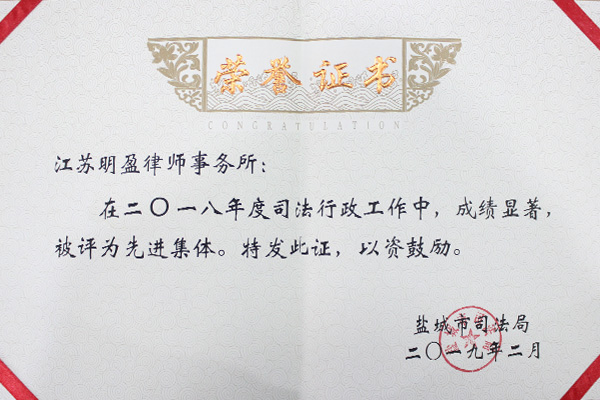 荣誉证书
CONGRATULATION
江苏明盈律师事务所：
在二〇一八年度司法行政工作中，成绩显著，
被评为先进集体。特发此证，以资鼓励。
盐城市司法局
二〇一九年二月